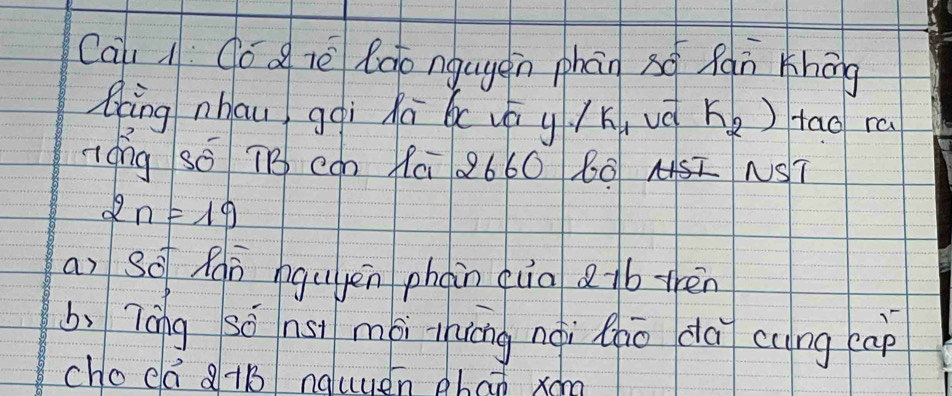 Câu 1: Có 2 tế bào nguyên phân số lần không
bằng nhau, gọi là x và y / K1 và K2) tạo ra
tổng số TB con là 2660 bộ NST
2n = 19
a) Số lần nguyên phân của 2 tb trên
b) Tổng số nst môi trường nội bào đã cung cấp
cho cả 2 TB nguyên phân xong